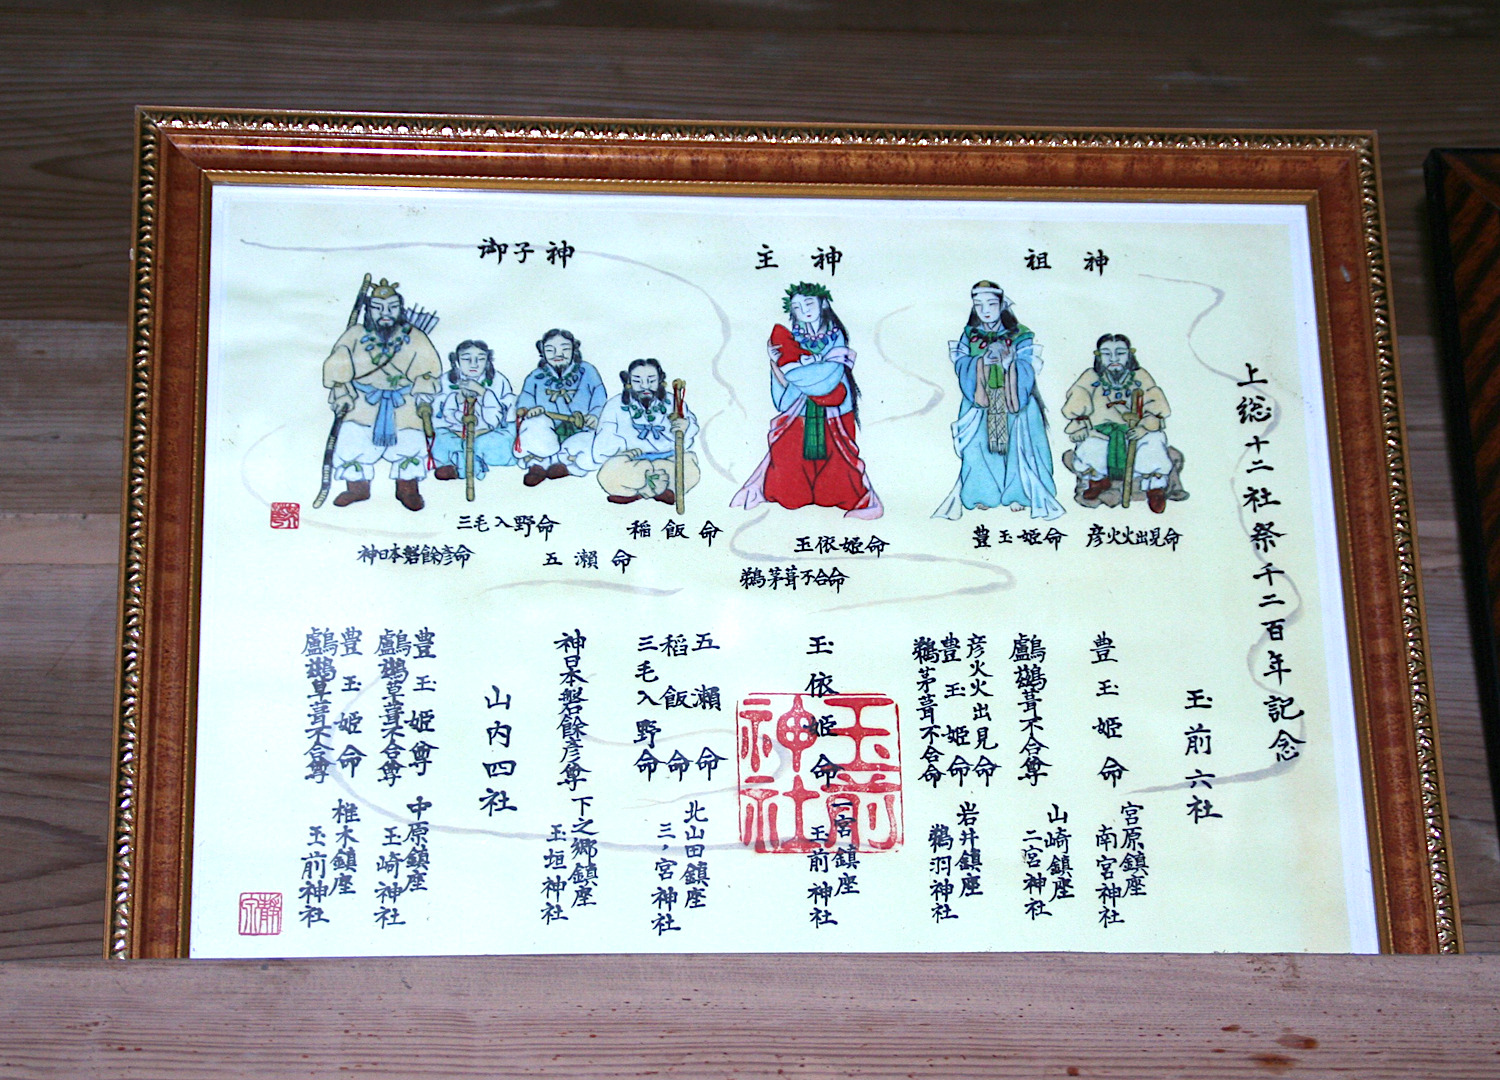 上総十二社祭千二百年記念
玉前六社
祖神
主神
御子神
彦火火出見命
豊玉姫命
玉依姫命
鵜茅葺不合命
稲飯命
五瀬命
三毛入野命
神日本磐余彦命
豊玉姫命
宮原鎮座
南宮神社
鸕鶿葺不合尊
山崎鎮座
二宮神社
彦火火出見命
豊玉姫命
鵜茅葺不合命
岩井鎮座
鵜羽神社
玉依姫命
一宮鎮座
玉前神社
玉前神社
五瀬命
稲飯命
三毛入野命
北山田鎮座
三ノ宮神社
神日本磐余彦尊
下之郷鎮座
玉垣神社
山内四社
豊玉姫尊
鸕鶿草葺不合尊
中原鎮座
玉崎神社
豊玉姫命
鸕鶿草葺不合尊
椎木鎮座
玉前神社